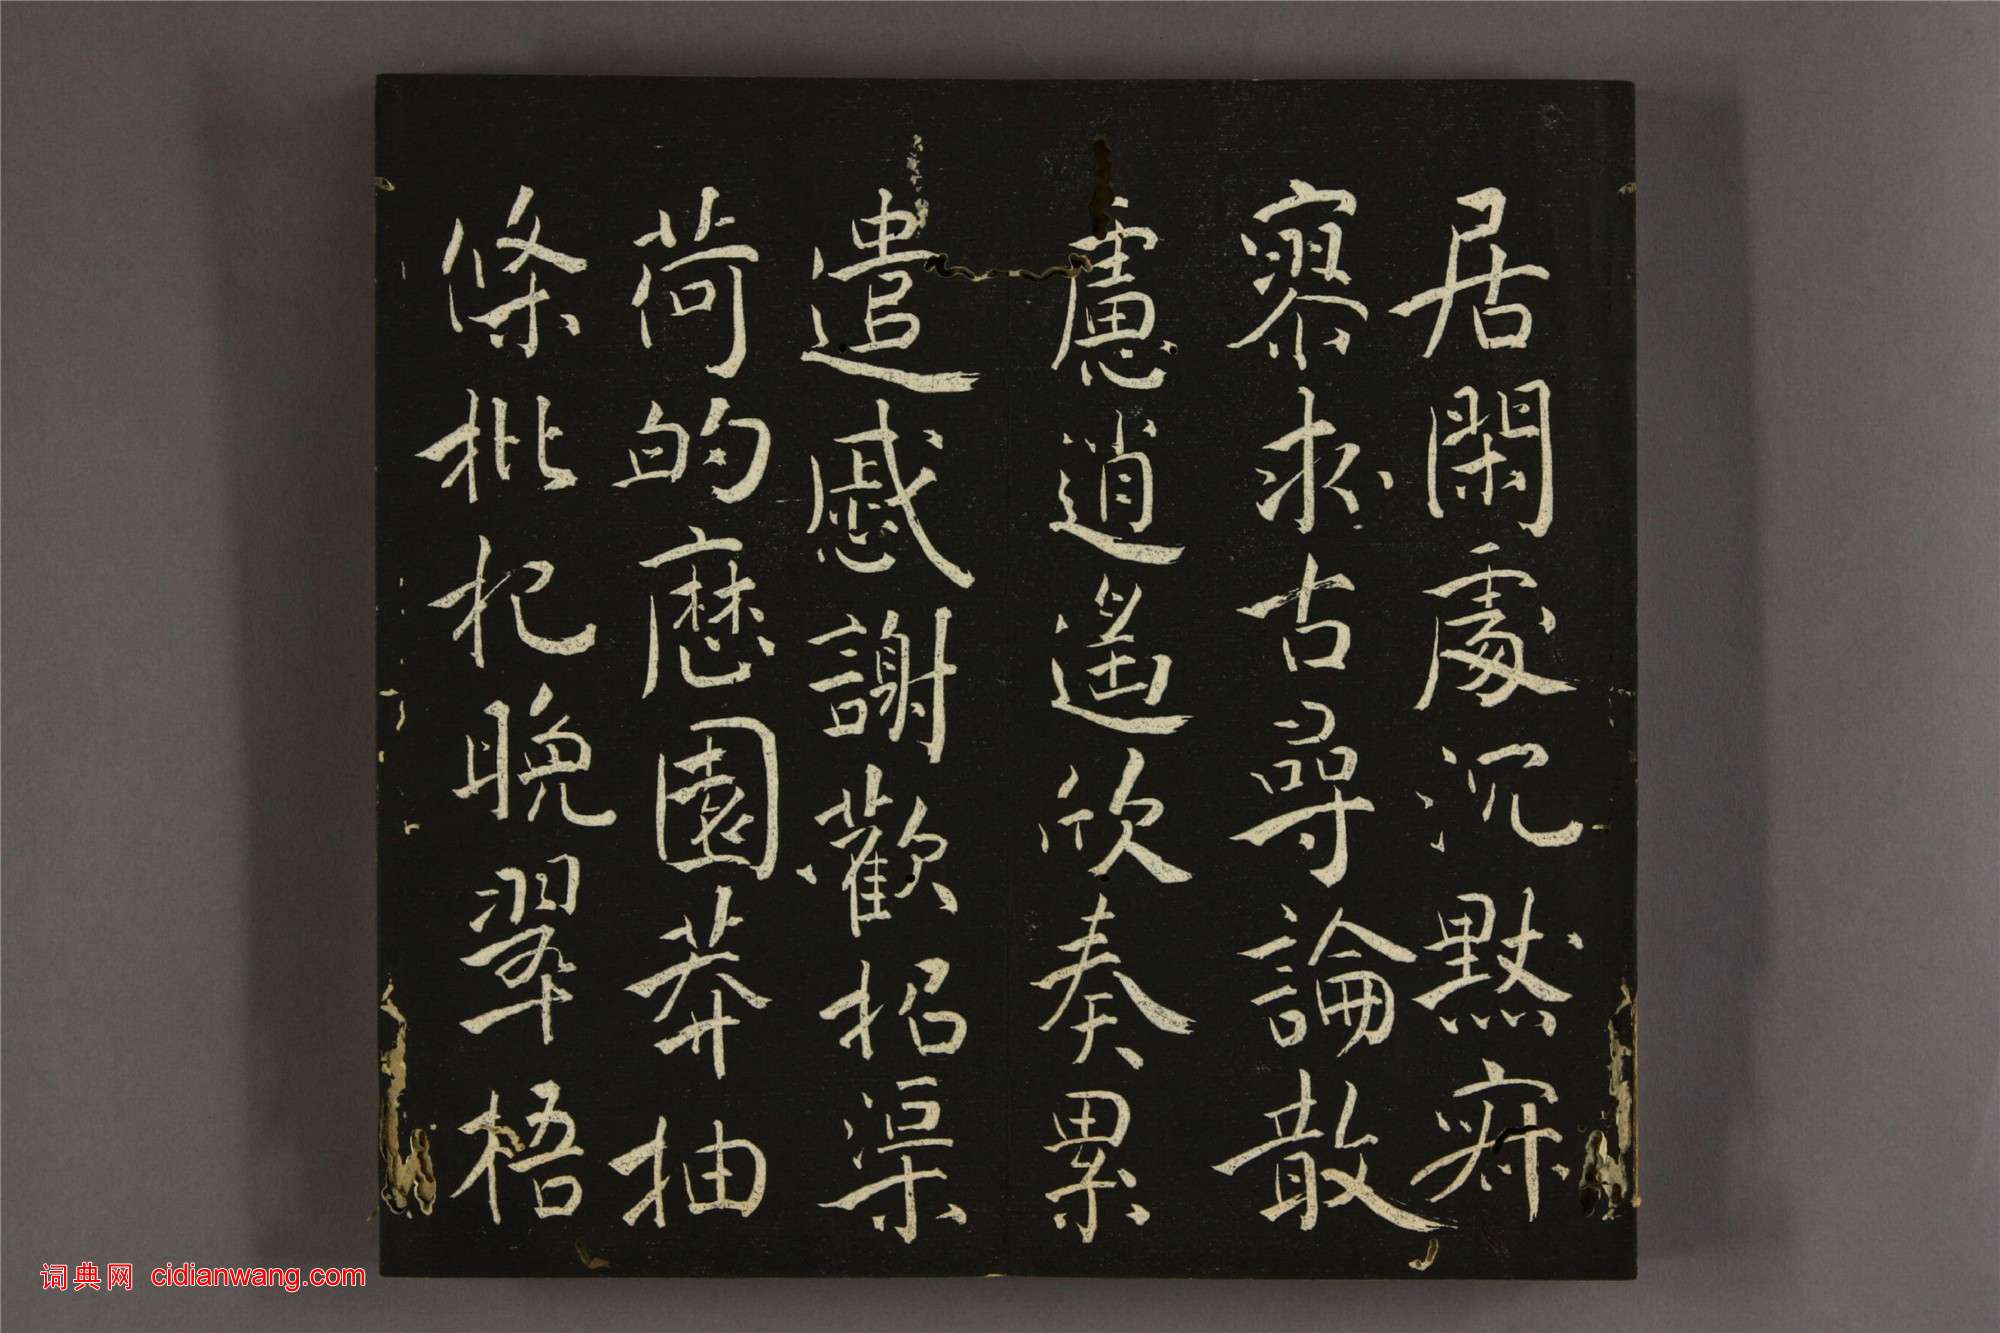 居閑處沉默寂
寥求古尋論散
慮逍遙欣奏累
遣慼謝歡招渠
荷的歷園莽抽
條枇杷晚翠梧
词典网 cidianwang.com